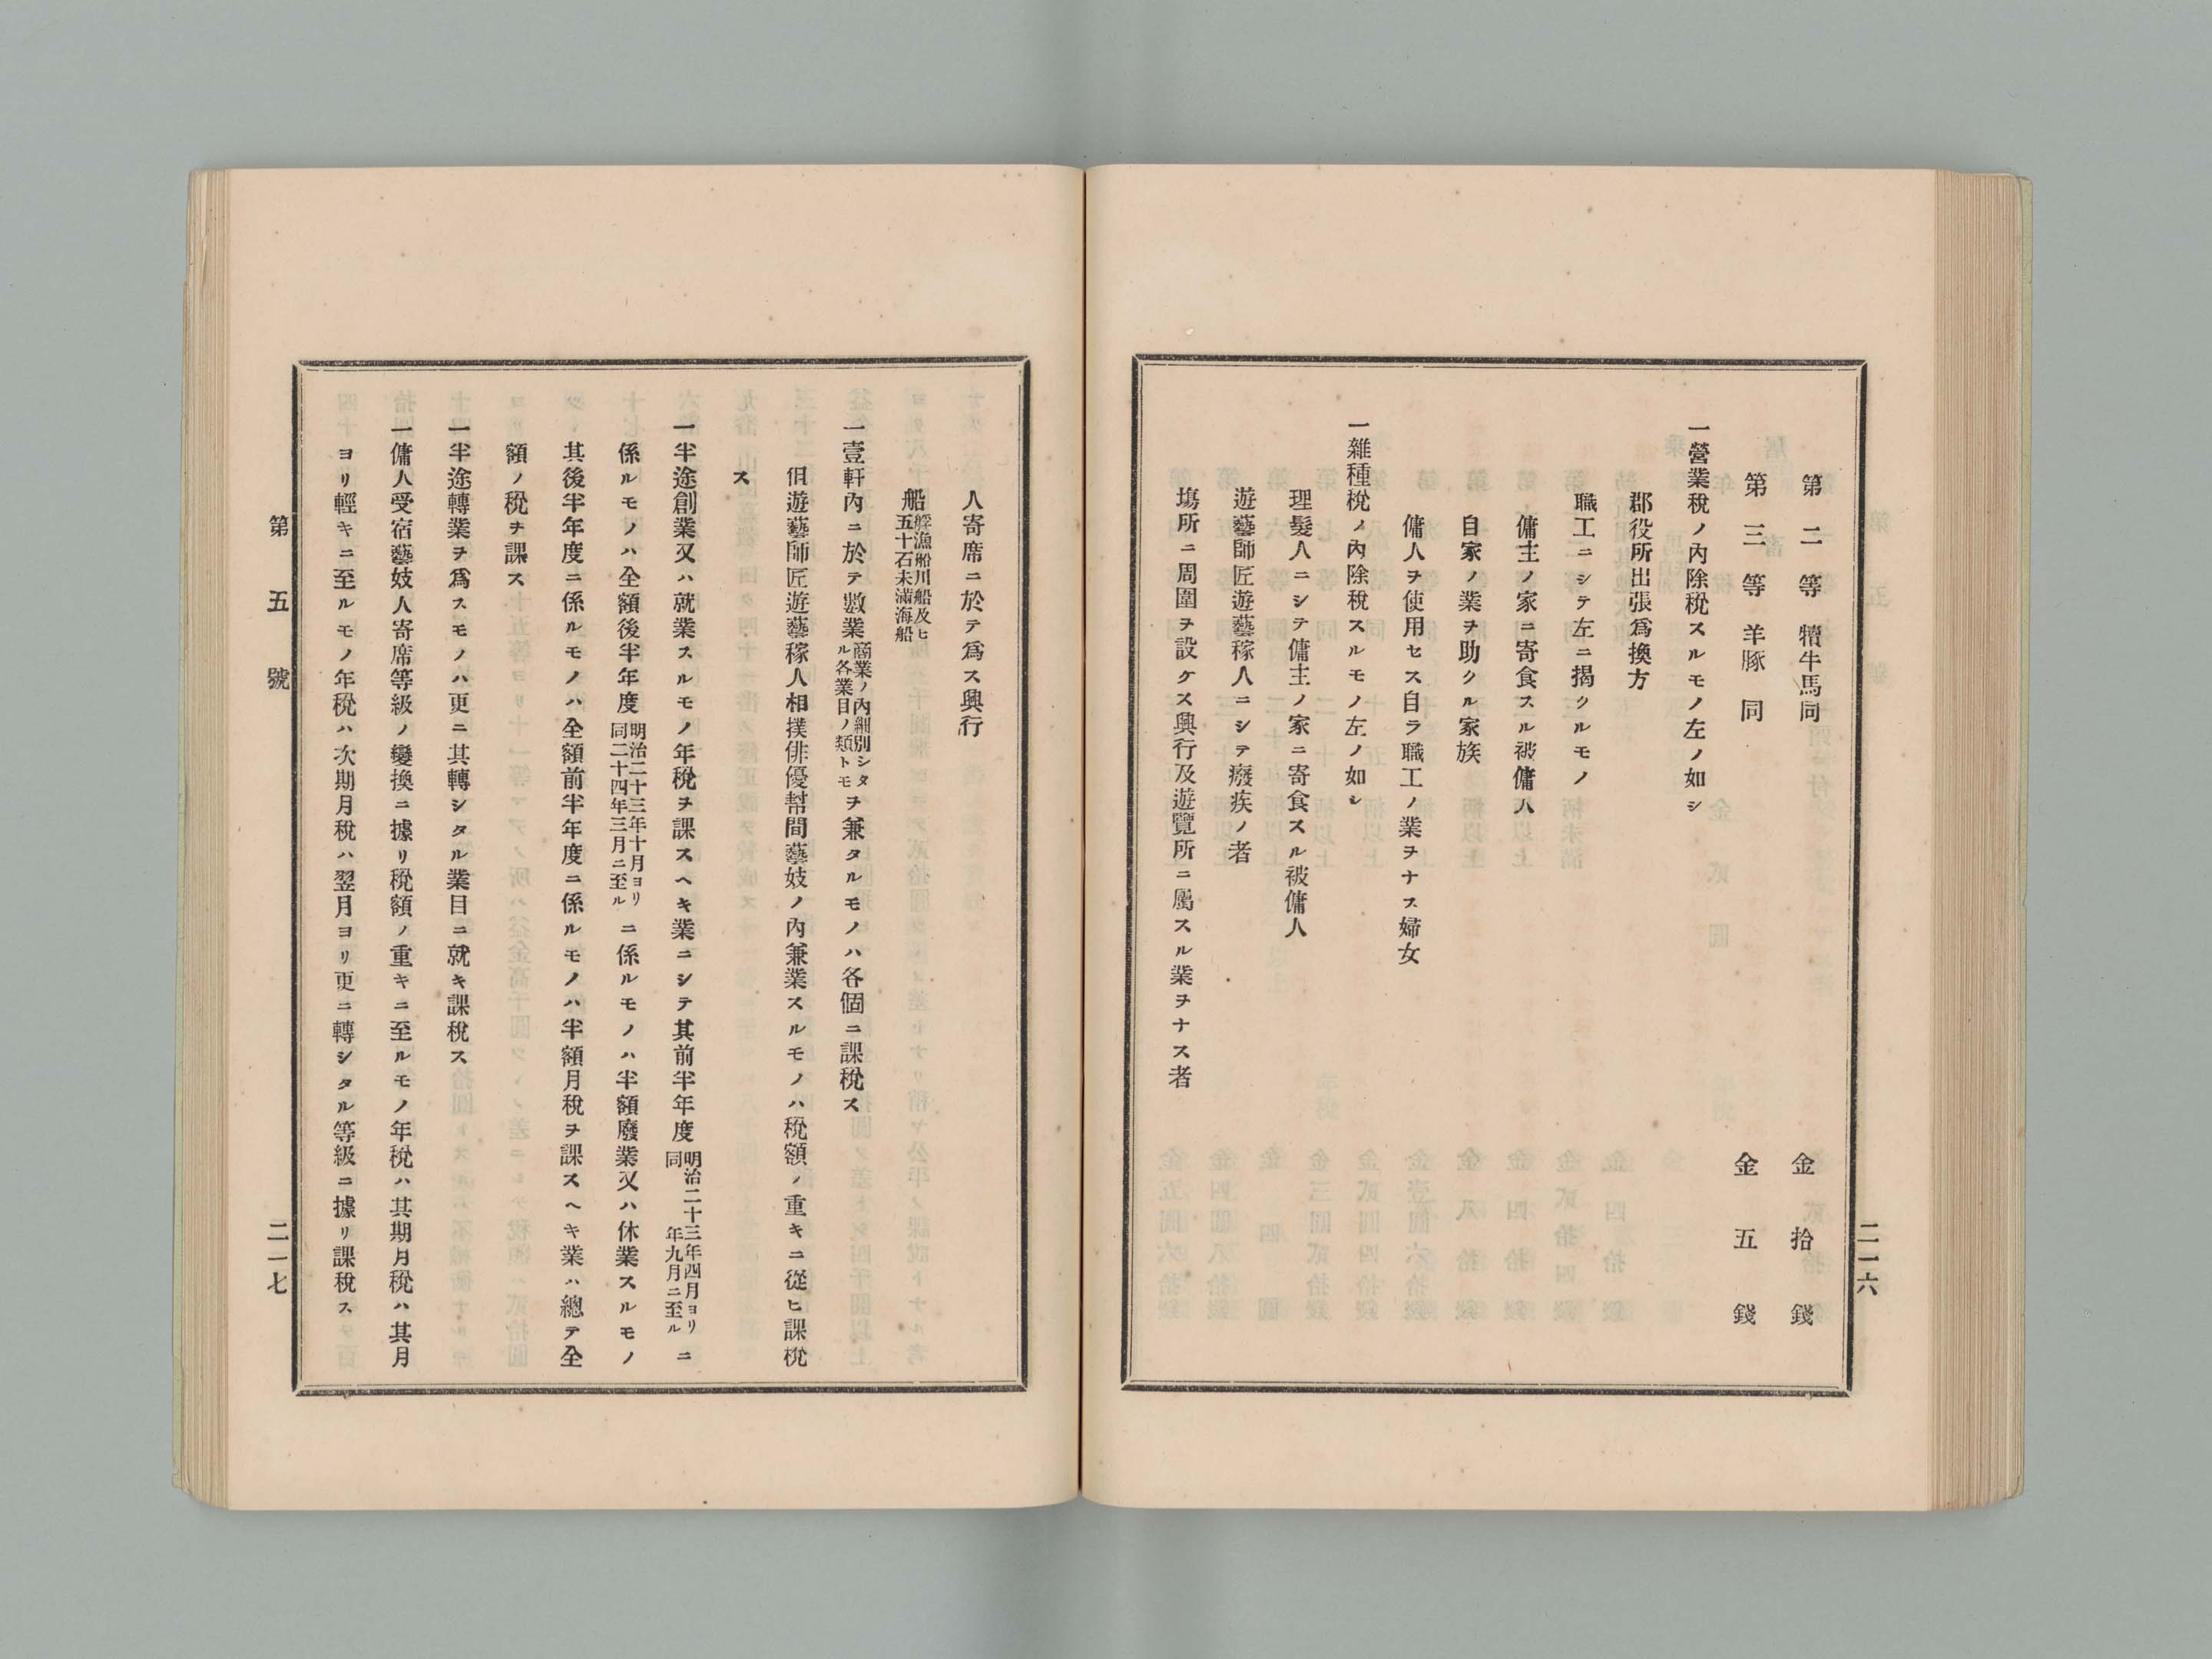 第二等 犢牛馬同 金拾錢
第三等 羊豚同 金五錢
一營業稅ノ內除稅スルモノ左ノ如シ
郡役所出張爲換方
職工ニシテ左ニ揭クルモノ
傭主ノ家ニ寄食スル被傭人
自家ノ業ヲ助クル家族
傭人ヲ使用セス自ラ職工ノ業ヲナス婦女
一雜種稅ノ內除稅スルモノ左ノ如シ
理髮人ニシテ傭主ノ家ニ寄食スル被傭人
遊藝師匠遊藝稼人ニシテ癈疾ノ者
塲所ニ周圍ヲ設ケス興行及遊覽所ニ屬スル業ヲナス者
二一六
人寄席ニ於テ爲ス興行
船艀漁船川船及ヒ五十石未滿海船
一壹軒內ニ於テ數業商業ノ內細別シタル各業目ノ類トモヲ兼タルモノハ各個ニ課稅ス
但遊藝師匠遊藝稼人相撲俳優幇間藝妓ノ內兼業スルモノハ稅額ノ重キニ從ヒ課稅
ス
一半途創業又ハ就業スルモノノ年稅ヲ課スヘキ業ニシテ其前半年度明治二十三年四月ヨリ同年九月ニ至ルニ
係ルモノハ全額後半年度明治二十三年十月ヨリ同二十四年三月ニ至ルニ係ルモノハ半額廢業又ハ休業スルモノ
其後半年度ニ係ルモノハ全額前半年度ニ係ルモノハ半額月稅ヲ課スヘキ業ハ總テ全
額ノ稅ヲ課ス
一半途轉業ヲ爲スモノハ更ニ其轉シタル業目ニ就キ課稅ス
一傭人受宿藝妓人寄席等級ノ變換ニ據リ稅額ノ重キニ至ルモノ年稅ハ其期月稅ハ其月
ヨリ輕キニ至ルモノ年稅ハ次期月稅ハ翌月ヨリ更ニ轉シタル等級ニ據リ課稅ス
第五號
二一七